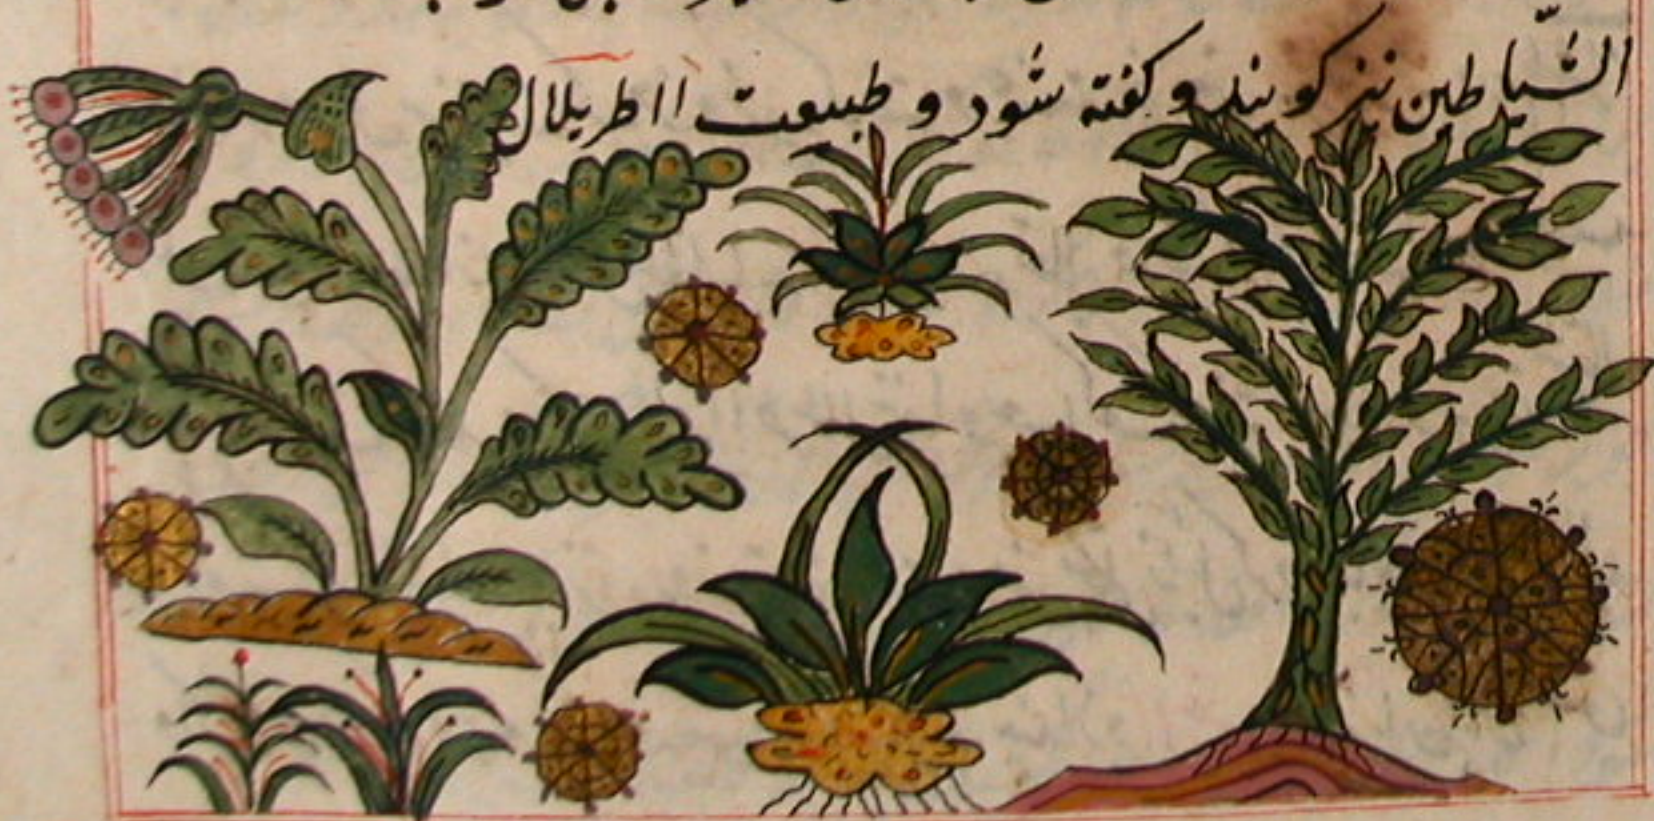 الشّیاطین نیز کویند و کفته شود و طبیعت ااطریلال